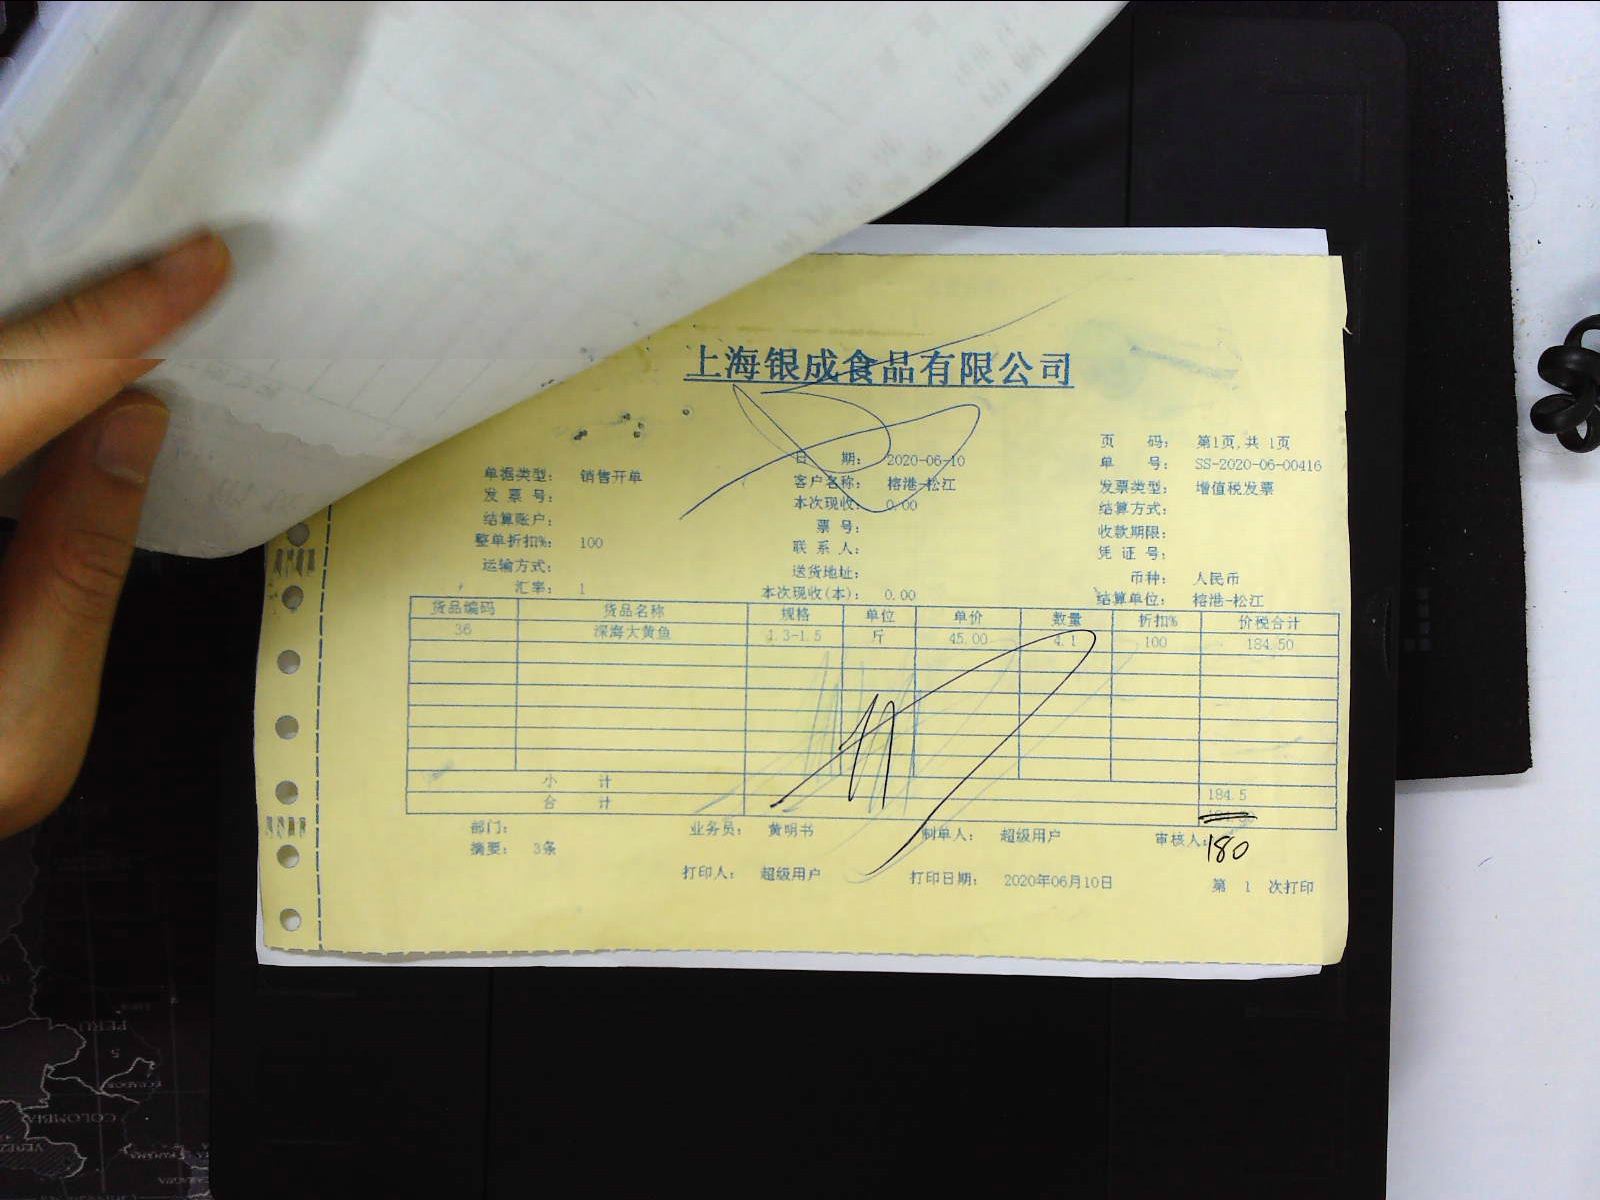 上海银成食品有限公司
单据类型： 销售开单 日 期： 2020-06-10 页 码： 第1页,共 1页
发 票 号： 客户名称： 榕港-松江 单 号： SS-2020-06-00416
结算账户： 本次现收： 0.00 发票类型： 增值税发票
整单折扣%： 100 票 号： 结算方式：
运输方式： 联 系 人： 收款期限：
汇率： 1 送货地址： 凭 证 号：
本次现收(本)： 0.00 币种： 人民币
结算单位： 榕港-松江
货品编码 货品名称 规格 单位 单价 数量 折扣% 价税合计
36 深海大黄鱼 1.3-1.5 斤 45.00 4.1 100 184.50
小 计 184.5
合 计
部门： 业务员： 黄明书 制单人： 超级用户 审核人：
180
摘要： 3条
打印人： 超级用户 打印日期： 2020年06月10日 第 1 次打印
PERU
COLOMBIA